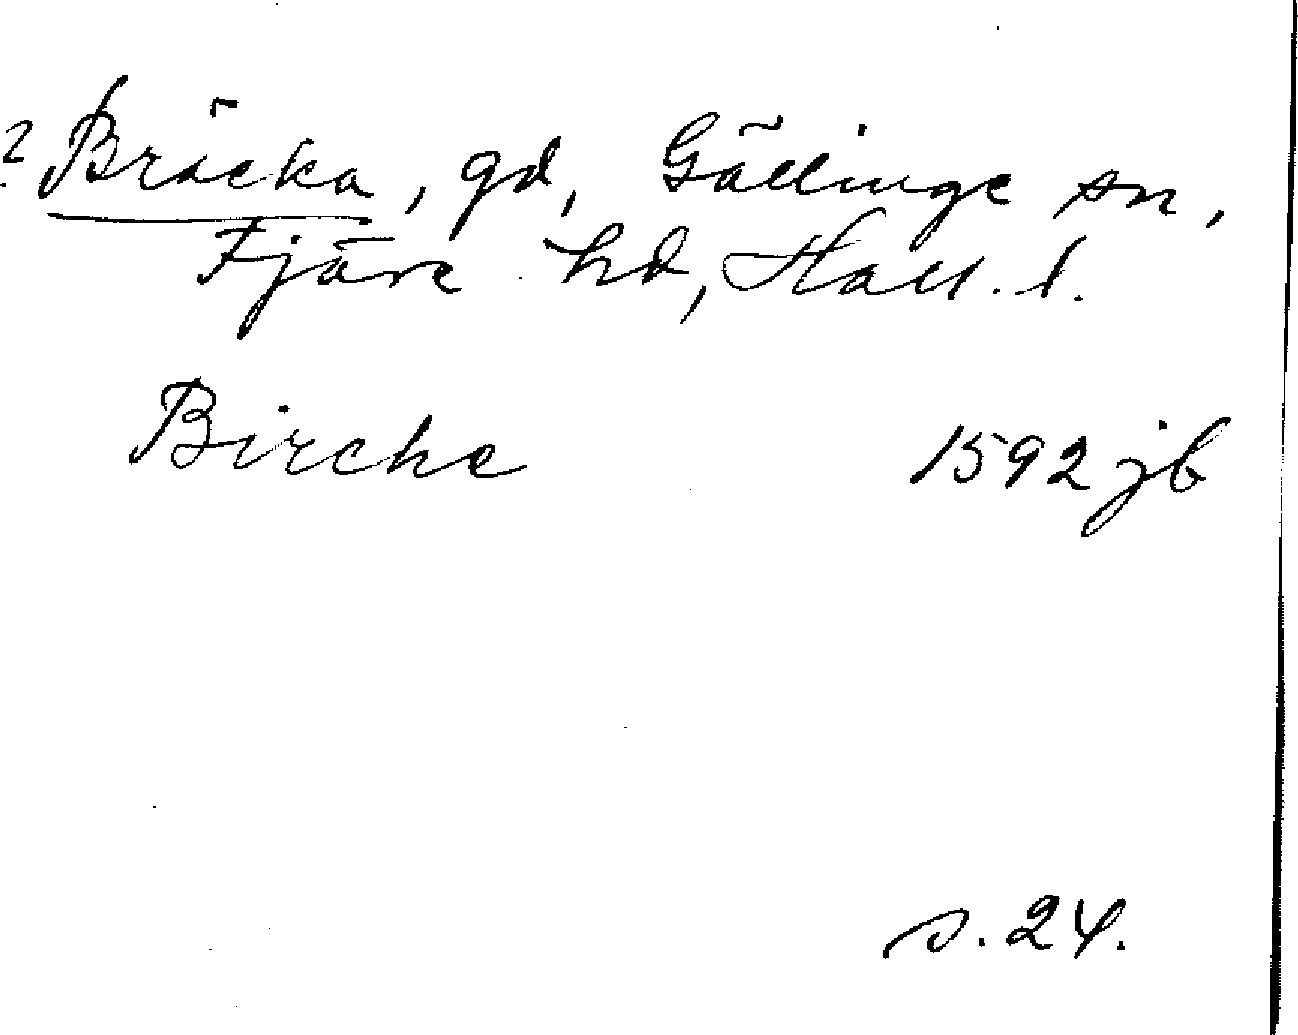 ? Bräcka, gd, Gällinge sn,
Fjäre hd, Hall. l.
Birche 1592 jb
s. 24.